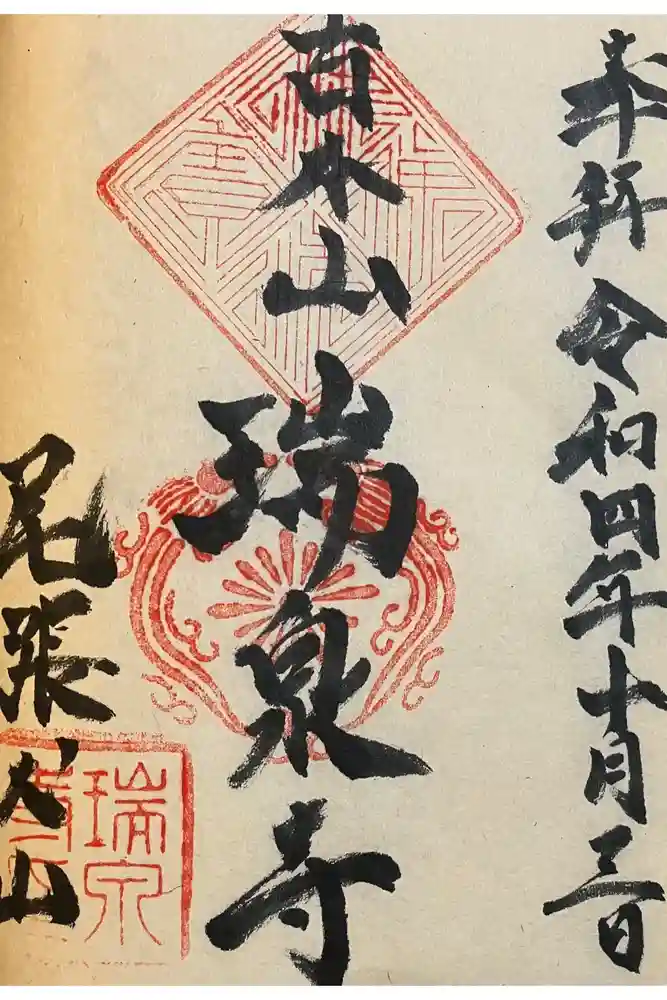 奉拝 令和四年十月三日
青木山 瑞泉寺
尾張犬山
瑞泉